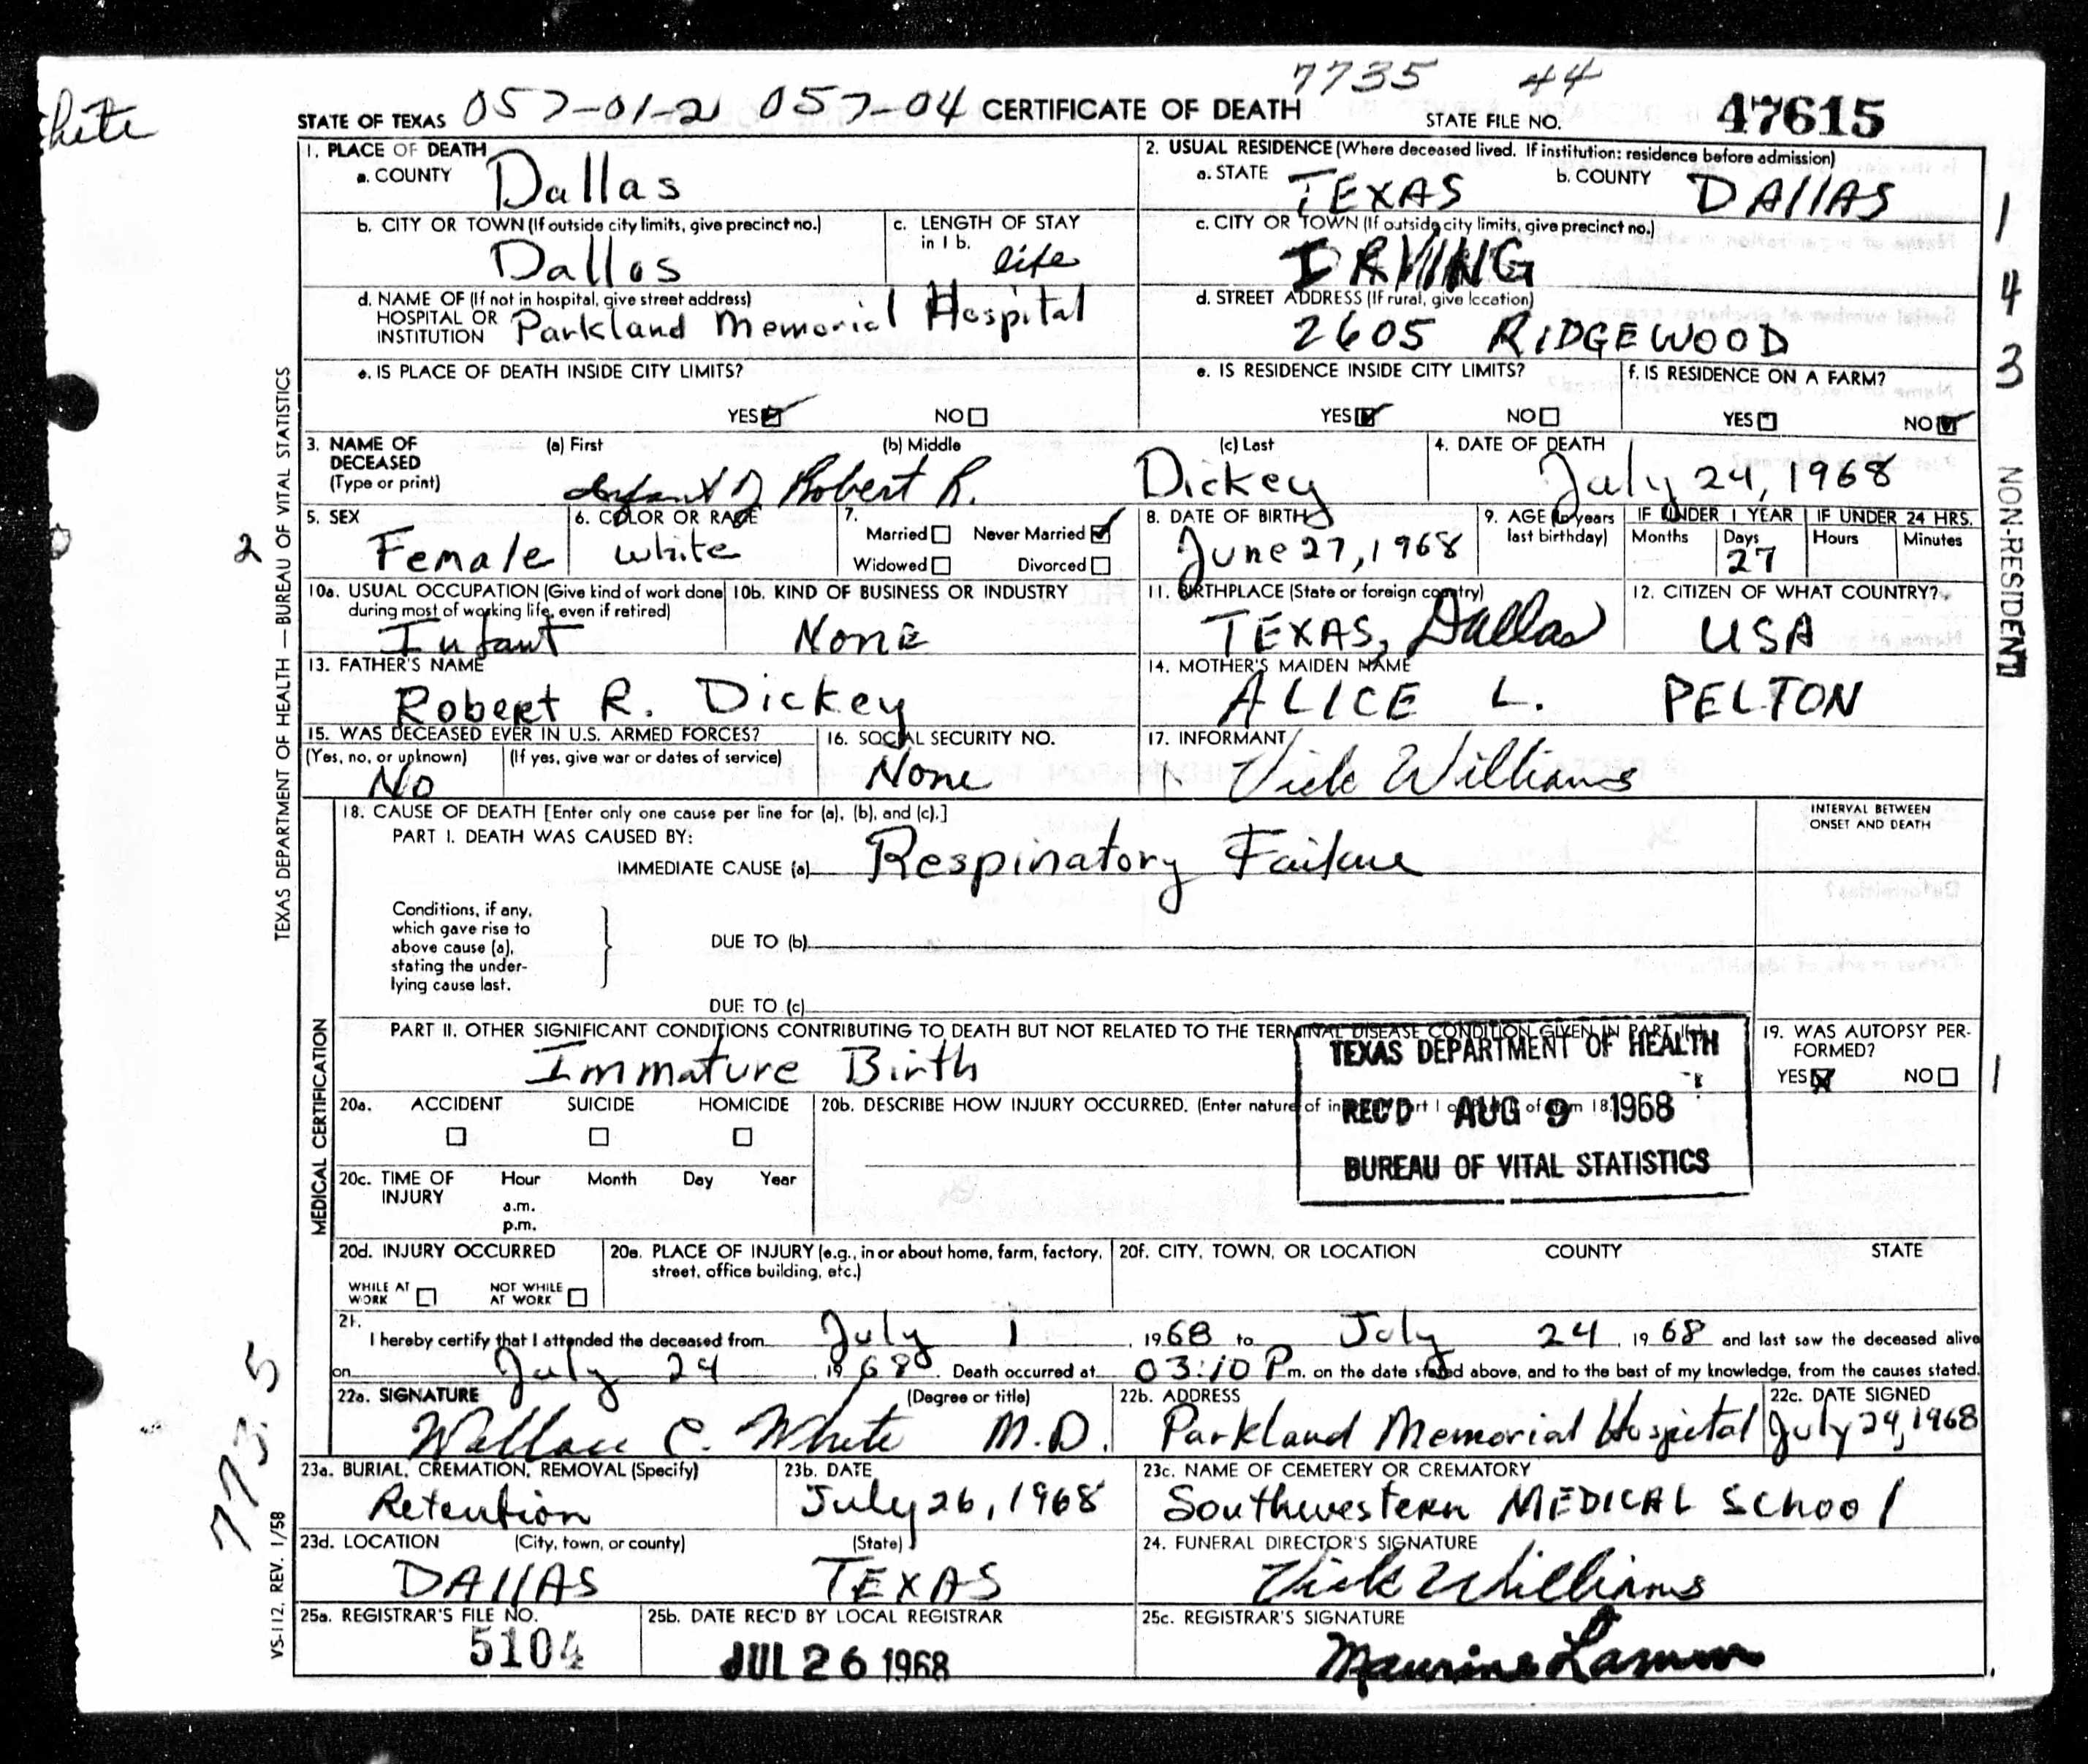 7735 44
hite
STATE OF TEXAS 057-01-2 057-04 CERTIFICATE OF DEATH STATE FILE NO. 47615
1. PLACE OF DEATH
a. COUNTY Dallas
2. USUAL RESIDENCE (Where deceased lived. If institution: residence before admission)
a. STATE TEXAS b. COUNTY DAllAS
b. CITY OR TOWN (If outside city limits, give precinct no.) Dallas
c. LENGTH OF STAY in 1 b. life
c. CITY OR TOWN (If outside city limits, give precinct no.) IRVING
d. NAME OF (If not in hospital, give street address)
HOSPITAL OR
INSTITUTION Parkland Memorial Hospital
d. STREET ADDRESS (If rural, give location)
2605 RIDGEWOOD
e. IS PLACE OF DEATH INSIDE CITY LIMITS?
YES NO
e. IS RESIDENCE INSIDE CITY LIMITS?
YES NO
f. IS RESIDENCE ON A FARM?
YES NO
1
4
3
NON-RESIDENT
3. NAME OF DECEASED (Type or print)
(a) First (b) Middle (c) Last
Infant of Robert R. Dickey
4. DATE OF DEATH July 24, 1968
5. SEX Female
6. COLOR OR RACE white
7. Married Never Married
Widowed Divorced
8. DATE OF BIRTH June 27, 1968
9. AGE (In years last birthday)
IF UNDER 1 YEAR IF UNDER 24 HRS.
Months Days Hours Minutes
27
2
10a. USUAL OCCUPATION (Give kind of work done during most of working life, even if retired)
Infant
10b. KIND OF BUSINESS OR INDUSTRY
None
11. BIRTHPLACE (State or foreign country)
TEXAS, Dallas
12. CITIZEN OF WHAT COUNTRY?
USA
13. FATHER'S NAME
Robert R. Dickey
14. MOTHER'S MAIDEN NAME
ALICE L. PELTON
15. WAS DECEASED EVER IN U.S. ARMED FORCES?
(Yes, no, or unknown) (If yes, give war or dates of service)
No
16. SOCIAL SECURITY NO.
None
17. INFORMANT
Vick Williams
TEXAS DEPARTMENT OF HEALTH — BUREAU OF VITAL STATISTICS
MEDICAL CERTIFICATION
18. CAUSE OF DEATH [Enter only one cause per line for (a), (b), and (c).]
INTERVAL BETWEEN
ONSET AND DEATH
PART I. DEATH WAS CAUSED BY:
IMMEDIATE CAUSE (a) Respiratory Failure
Conditions, if any,
which gave rise to
above cause (a),
stating the under-
lying cause last.
DUE TO (b)
DUE TO (c)
PART II. OTHER SIGNIFICANT CONDITIONS CONTRIBUTING TO DEATH BUT NOT RELATED TO THE TERMINAL DISEASE CONDITION GIVEN IN PART I
Immature Birth
19. WAS AUTOPSY PER-
FORMED?
YES NO
1
TEXAS DEPARTMENT OF HEALTH
REC'D AUG 9 1968
BUREAU OF VITAL STATISTICS
20a. ACCIDENT SUICIDE HOMICIDE
20b. DESCRIBE HOW INJURY OCCURRED. (Enter nature of
20c. TIME OF INJURY
Hour Month Day Year
a.m.
p.m.
20d. INJURY OCCURRED
WHILE AT WORK NOT WHILE AT WORK
20e. PLACE OF INJURY (e.g., in or about home, farm, factory, street, office building, etc.)
20f. CITY, TOWN, OR LOCATION COUNTY STATE
21.
I hereby certify that I attended the deceased from July 1, 1968 to July 24, 1968 and last saw the deceased alive
on July 24, 1968. Death occurred at 03:10 P m. on the date stated above, and to the best of my knowledge, from the causes stated.
22a. SIGNATURE (Degree or title)
Wallace C. White M.D.
22b. ADDRESS
Parkland Memorial Hospital
22c. DATE SIGNED
July 24, 1968
773.5
23a. BURIAL, CREMATION, REMOVAL (Specify)
Retention
23b. DATE
July 26, 1968
23c. NAME OF CEMETERY OR CREMATORY
Southwestern MEDICAL School
23d. LOCATION (City, town, or county) (State)
DAllAS TEXAS
24. FUNERAL DIRECTOR'S SIGNATURE
Vick Williams
25a. REGISTRAR'S FILE NO.
5104
25b. DATE REC'D BY LOCAL REGISTRAR
JUL 26 1968
25c. REGISTRAR'S SIGNATURE
VS-112, REV. 1/58